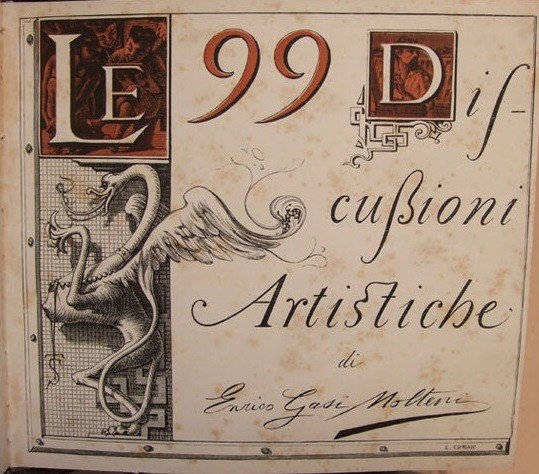 LE 99 Diſ-
cußioni
Artistiche
di
Enrico Gasi Molteni